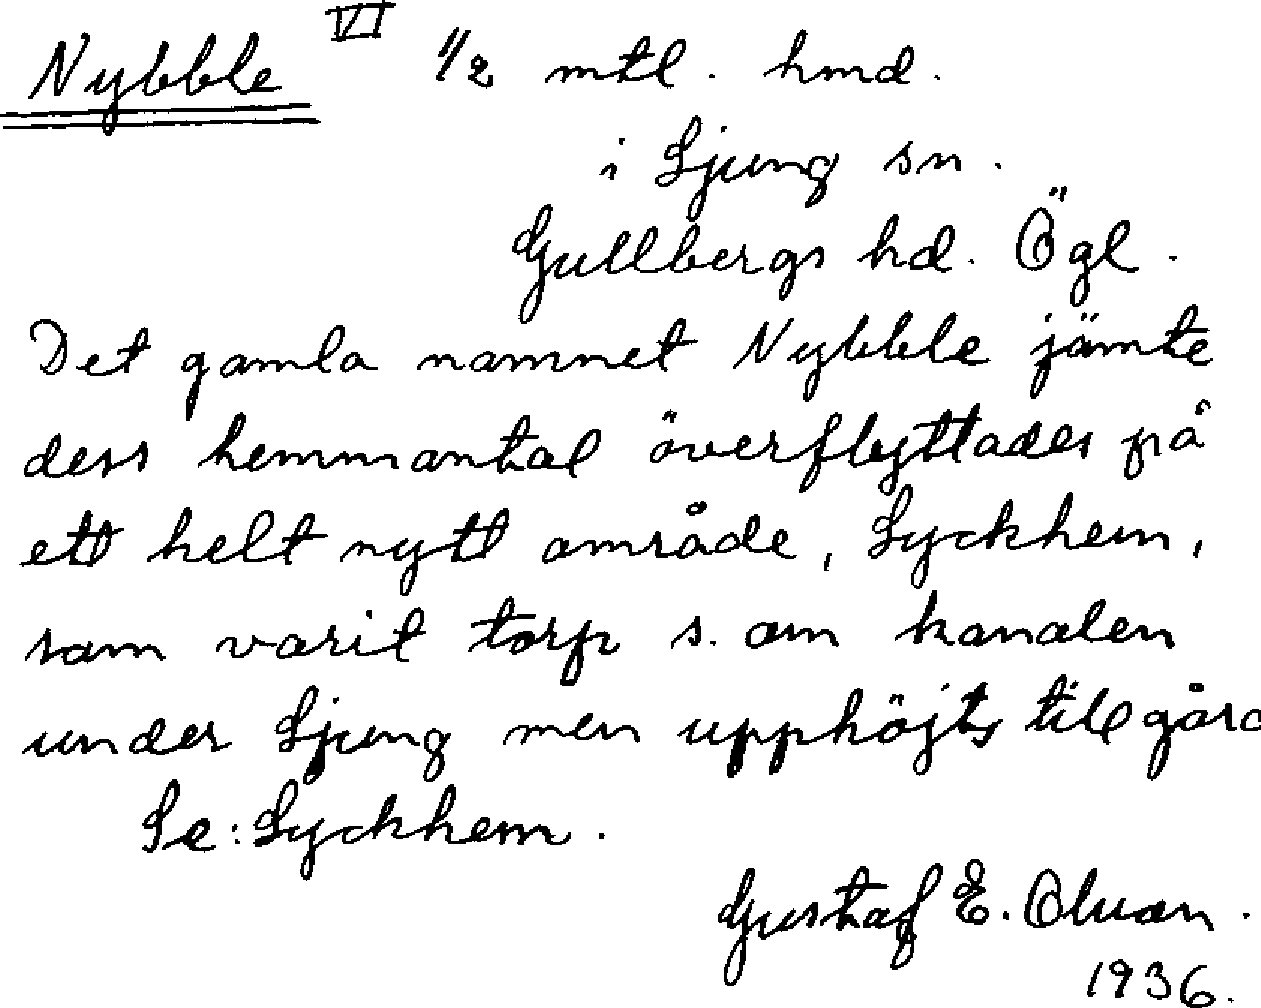 Nybble VI 1/2 mtl. hmd.
i Ljung sn.
Gullbergs hd. Ögl.
Det gamla namnet Nybble jämte
dess hemmantal överflyttades på
ett helt nytt område, Lyckhem,
som varit torp s. om kanalen
under Ljung men upphöjts till gård
Se: Lyckhem.
Gustaf E. Olsson.
1936.